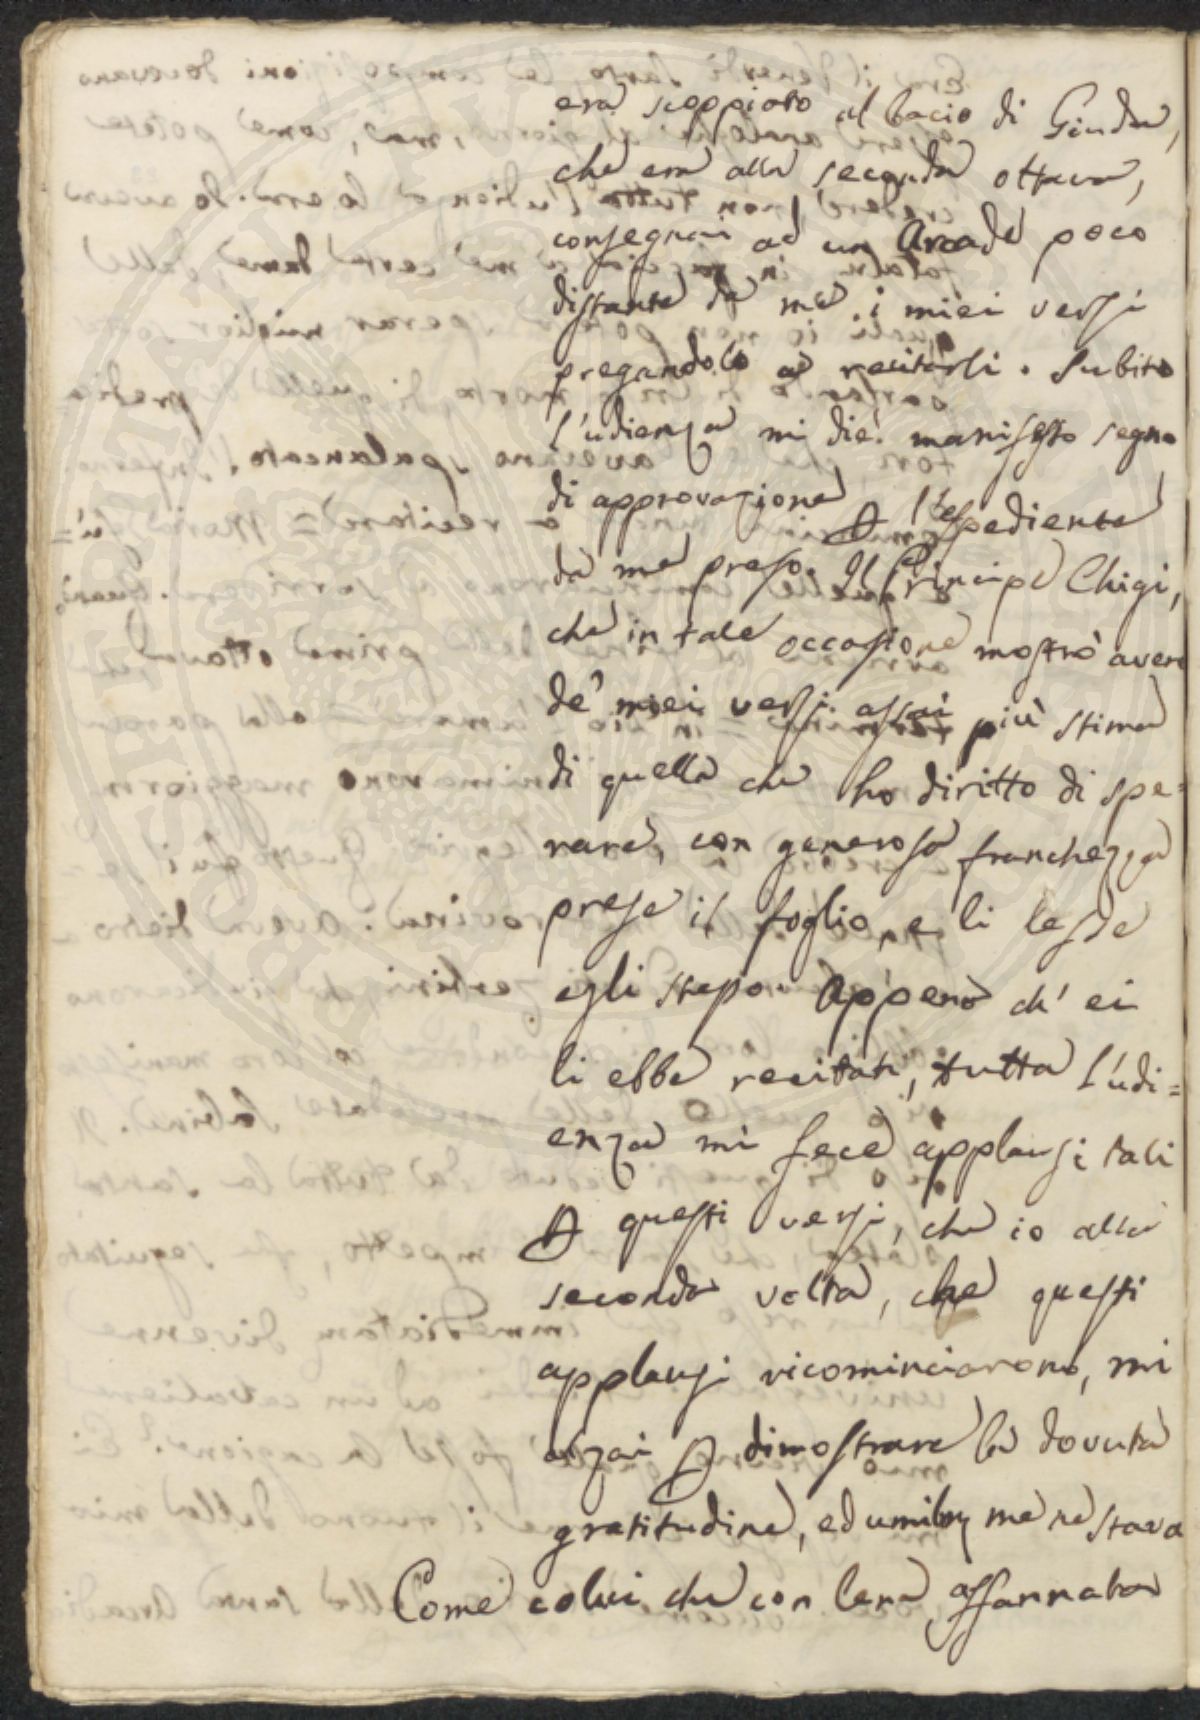 era scoppiato al bacio di Giuda,
che era alla seconda ottava,
consegnai ad un Arcade poco
distante da me i miei versi
pregandolo a recitarli. Subito
l'udienza mi diè manifesto segno
di approvazione p l'espediente
da me preso. Il Principe Chigi,
che in tale occasione mostrò avere
de' miei versi assai più stima
di quella che ho diritto di spe=
rare, con generosa franchezza
prese il foglio, e li lesse
egli stesso. Appena ch' ei
li ebbe recitati, tutta l'udi=
enza mi fece applausi tali
p questi versi, che io alla
seconda volta, che questi
applausi ricominciarono, mi
alzai p dimostrare la dovuta
gratitudine, ed me ne stava
Come colui che con lena affannata